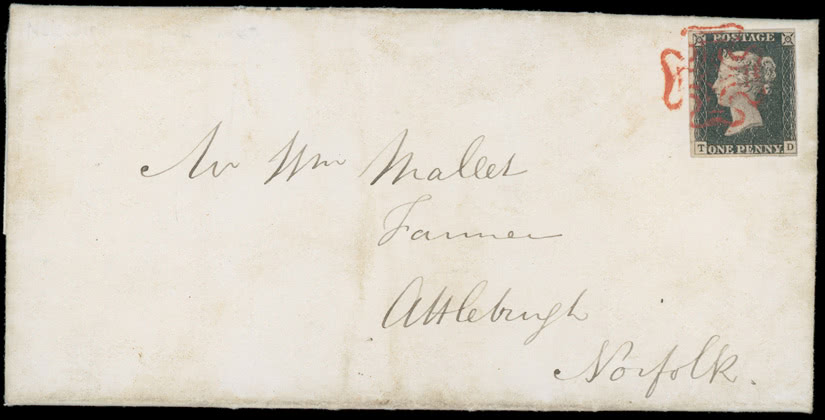 POSTAGE
T D
ONE PENNY.
Mr Wm Mallet
Farmer
Attleburgh
Norfolk.